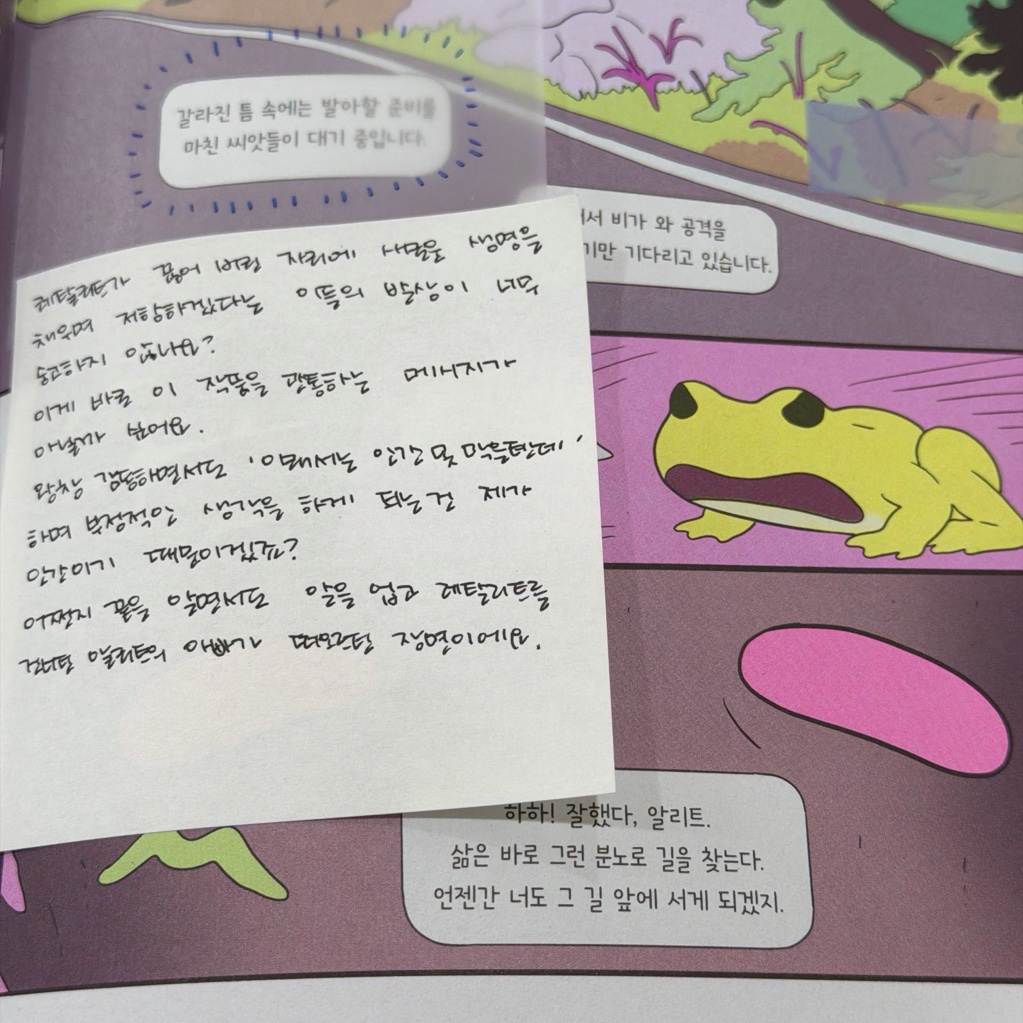 갈라진 틈 속에는 발아할 준비를
마친 씨앗들이 대기 중입니다.
서 비가 와 공격을
기만 기다리고 있습니다.
레탈리트가 끊어 버린 자리에 새로운 생명을
채우며 저항하겠다는 이들의 발상이 너무
숭고하지 않나요?
이게 바로 이 작품을 관통하는 메시지가
아닐까 싶어요.
왕창 감동하면서도 '이래서는 인간 못 막을텐데'
하며 부정적인 생각을 하게 되는 건 제가
인간이기 때문이겠죠?
어쩐지 끝을 알면서도 알을 업고 레탈리트를
건너던 알리트의 아빠가 떠오르던 장면이에요.
하하! 잘했다, 알리트.
삶은 바로 그런 분노로 길을 찾는다.
언젠간 너도 그 길 앞에 서게 되겠지.